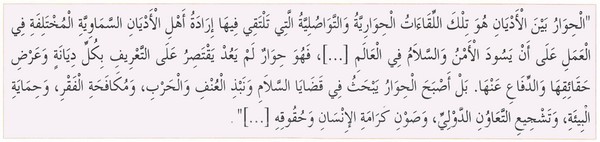 "الْحِوَارُ بَيْنَ الْأَدْيَانِ هُوَ تِلْكَ اللِّقَاءَاتُ الْحِوَارِيَّةُ وَالتَّوَاصُلِيَّةُ الَّتِي تَلْتَقِي فِيهَا إِرَادَةُ أَهْلِ الْأَدْيَانِ السَّمَاوِيَّةِ الْمُخْتَلِفَةِ فِي
الْعَمَلِ عَلَى أَنْ يَسُودَ الْأَمْنُ وَالسَّلَامُ فِي الْعَالَمِ [...]، فَهُوَ حِوَارٌ لَمْ يَعُدْ يَقْتَصِرُ عَلَى التَّعْرِيفِ بِكُلِّ دِيَانَةٍ وَعَرْضِ
حَقَائِقِهَا وَالدِّفَاعِ عَنْهَا. بَلْ أَصْبَحَ الْحِوَارُ يَبْحَثُ فِي قَضَايَا السَّلَامِ وَنَبْذِ الْعُنْفِ وَالْحَرْبِ، وَمُكَافَحَةِ الْفَقْرِ، وَحِمَايَةِ
الْبِيئَةِ، وَتَشْجِيعِ التَّعَاوُنِ الدَّوْلِيِّ، وَصَوْنِ كَرَامَةِ الْإِنْسَانِ وَحُقُوقِهِ [...]".